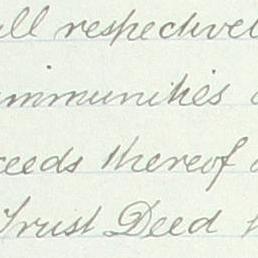 all respectivel
mmunities
ceeds thereof
Trust Deed